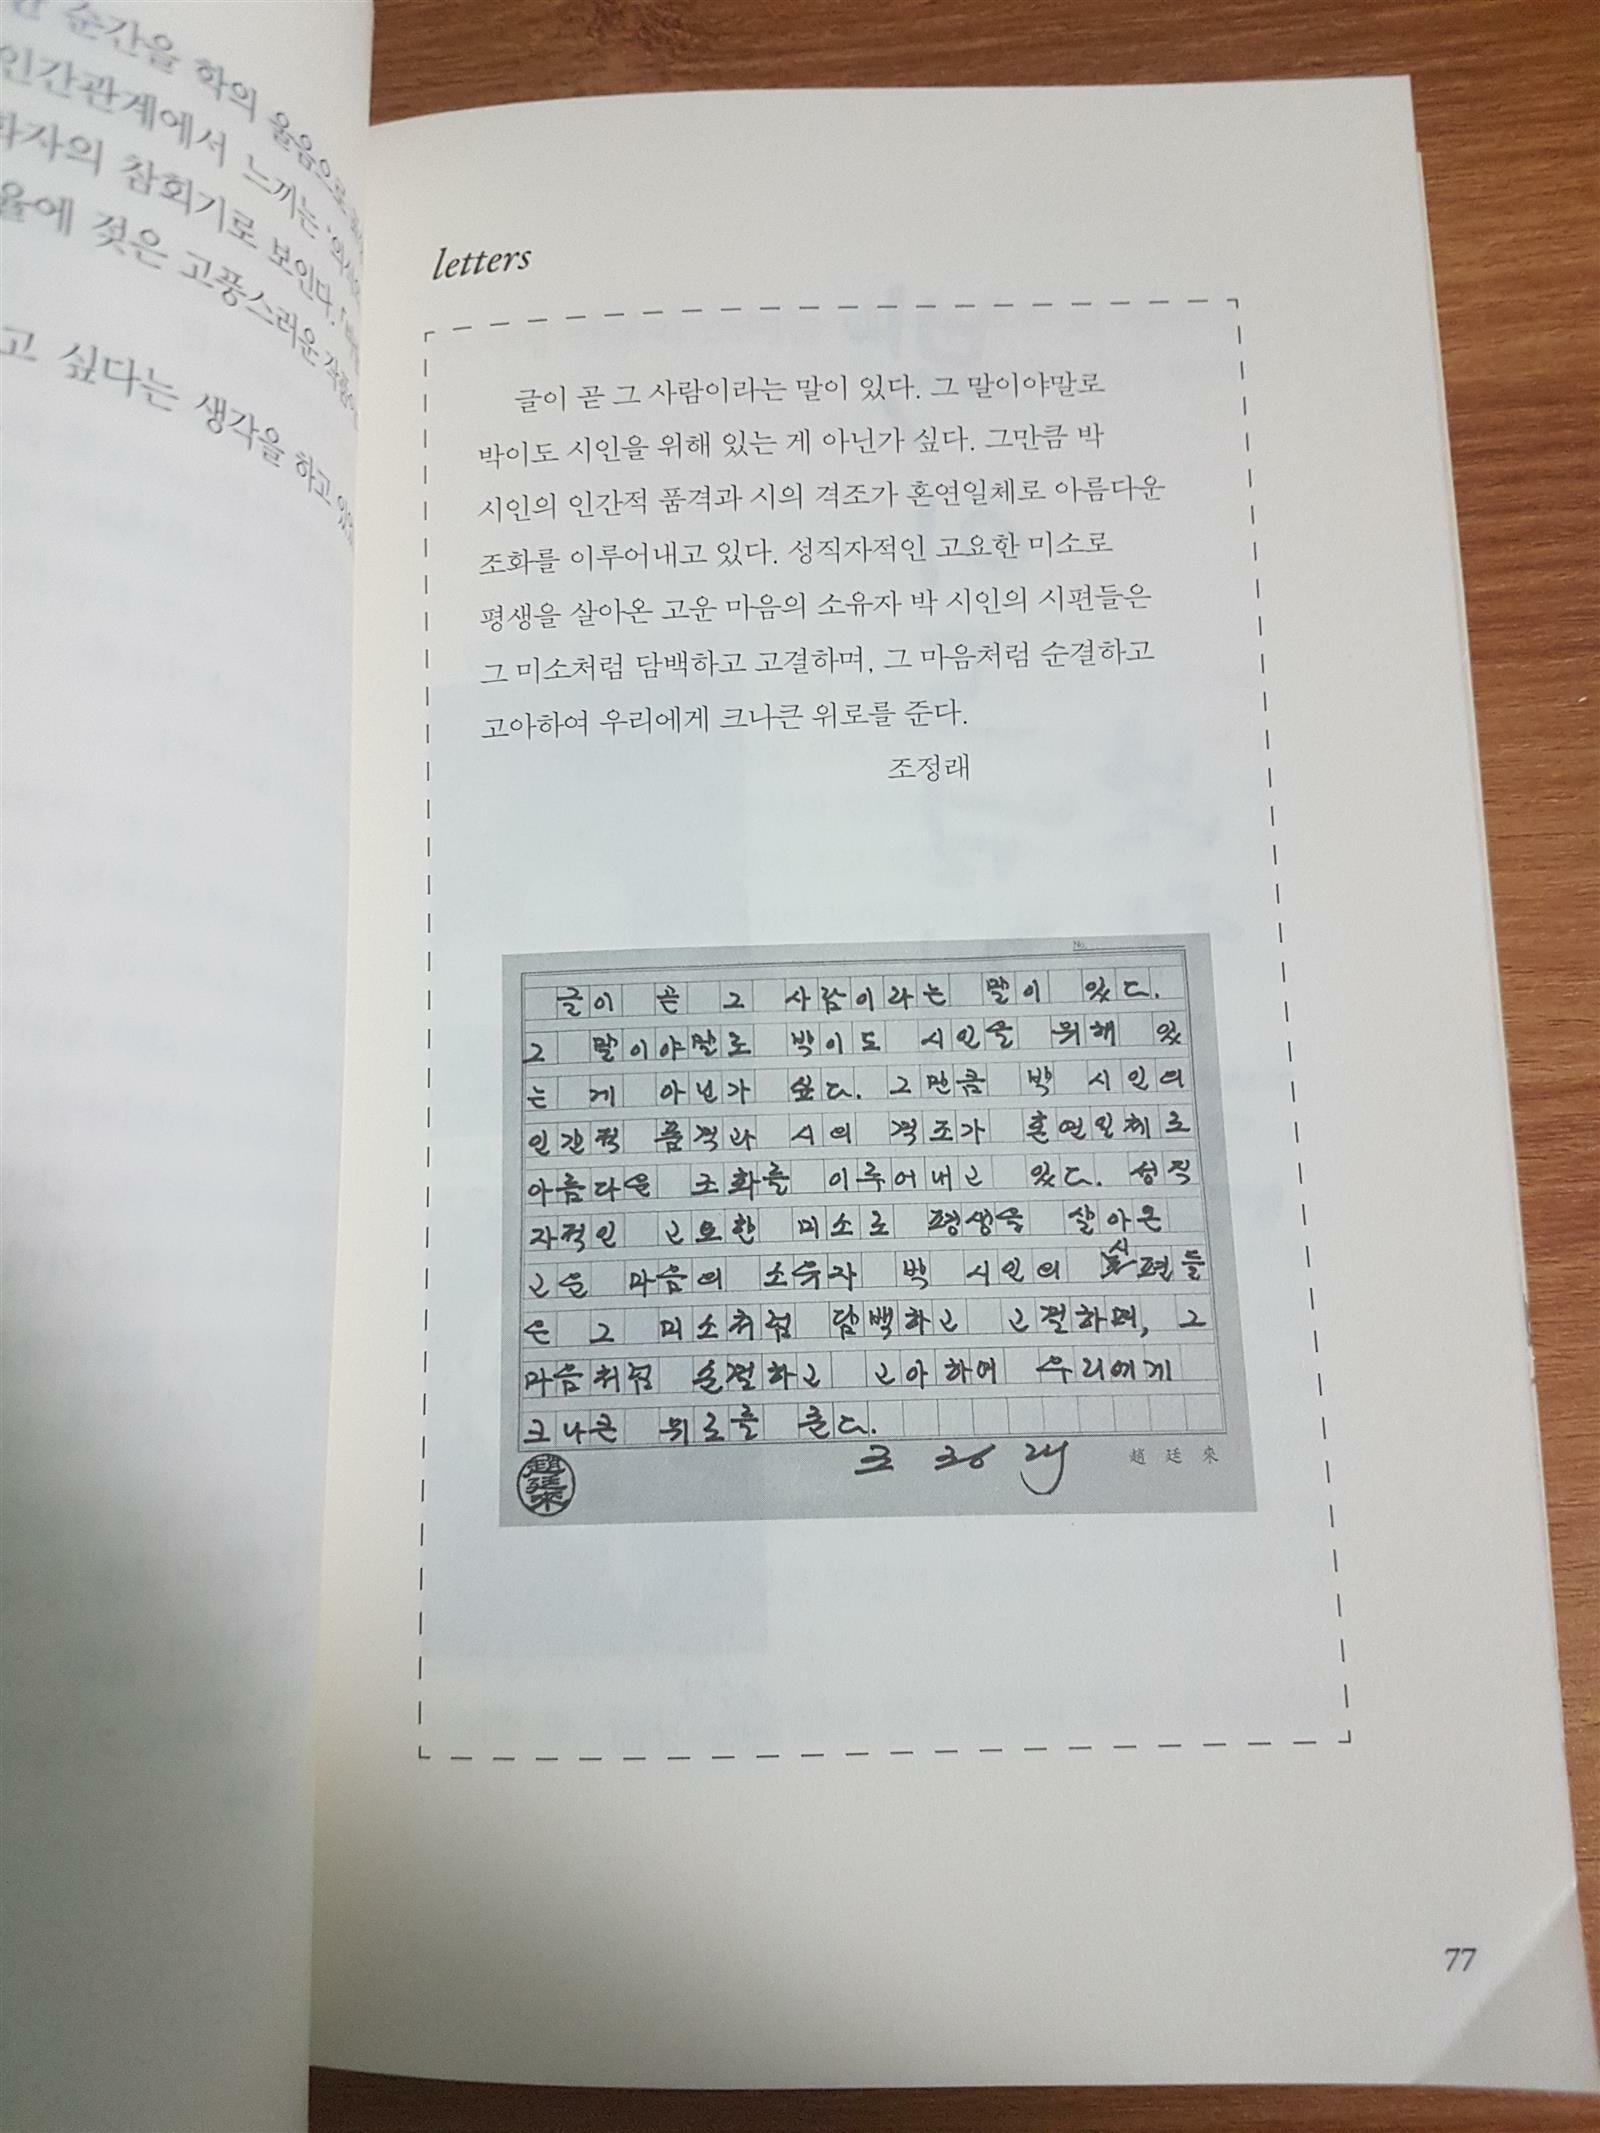 순간을 학의 울음으로
인간관계에서 느끼는
참회기로 보인다.
젖은 고풍스러운
고 싶다는 생각을 하고
letters
글이 곧 그 사람이라는 말이 있다. 그 말이야말로
박이도 시인을 위해 있는 게 아닌가 싶다. 그만큼 박
시인의 인간적 품격과 시의 격조가 혼연일체로 아름다운
조화를 이루어내고 있다. 성직자적인 고요한 미소로
평생을 살아온 고운 마음의 소유자 박 시인의 시편들은
그 미소처럼 담백하고 고결하며, 그 마음처럼 순결하고
고아하여 우리에게 크나큰 위로를 준다.
조정래
No.
글이 곧 그 사람이라는 말이 있다.
그 말이야말로 박이도 시인을 위해 있
는 게 아닌가 싶다. 그만큼 박 시인의
인간적 품격과 시의 격조가 혼연일체로
아름다운 조화를 이루어내고 있다. 성직
자적인 고요한 미소로 평생을 살아온
고운 마음의 소유자 박 시인의 시편들
은 그 미소처럼 담백하고 고결하며, 그
마음처럼 순결하고 고아하여 우리에게
크나큰 위로를 준다.
조정래 趙廷來
趙廷來
77